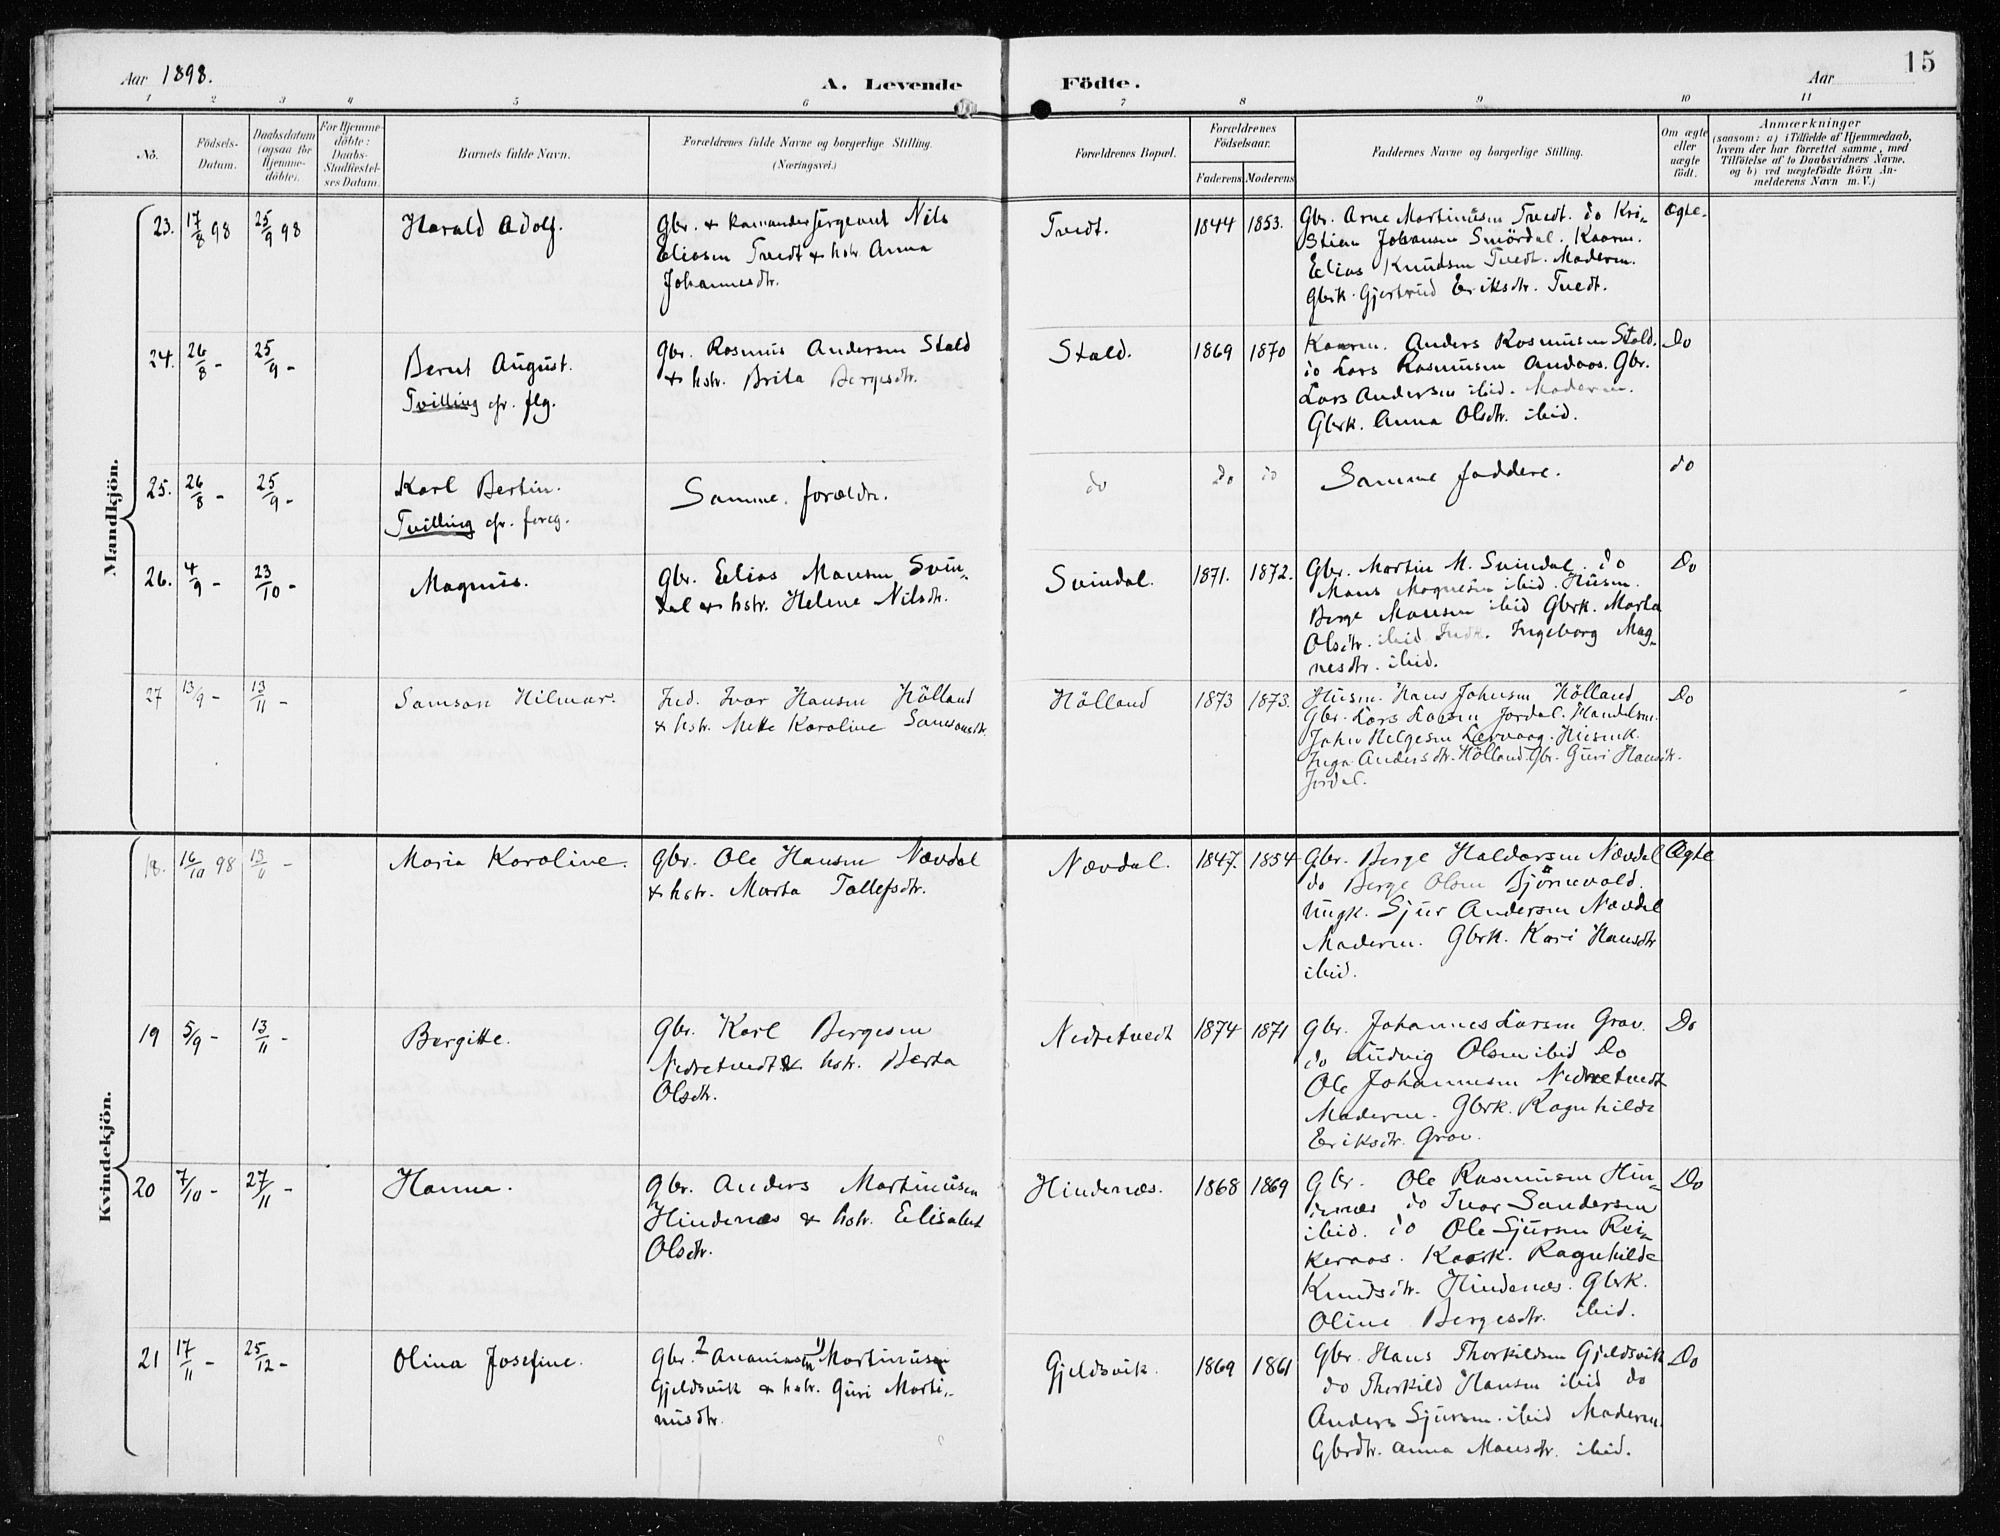 Aar 1898. A. Levende Födte. Aar 15
1 2 3 4 5 6 7 8 9 10 11
Nö.
Födsels-
Datum.
Daabsdatum
(ogsaa för
Hjemme-
döbte).
For Hjemme-
döbte:
Daabs-
Stadfæstel-
ses Datum.
Barnets fulde Navn.
Forældrenes fulde Navne og borgerlige Stilling.
(Næringsvei.)
Forældrenes Bopæl.
Forældrenes
Födselsaar.
Faderens Moderens
Faddernes Navne og borgerlige Stilling.
Om ægte
eller
uægte
födt.
Anmærkninger
(saasom: a) i Tilfælde af Hjemmedaab,
hvem der har forrettet samme, med
Tilföielse af to Daabsvidners Navne,
og b) ved uægtefödte Börn An-
melderens Navn m. V.)
Mandkjön.
23. 17/8 98 25/9 98
Harald Adolf.
Gbr. & Komandersergeant Nils
Eliasen Tvedt & hstr Anna
Johannesdtr.
Tvedt.
1844 1853.
Gbr. Arne Martinusen Tvedt. do Kri-
stian Johansen Smördal. Kaarm.
Elias Knudsen Tvedt. Moderen.
Gbrk. Gjertrud Eriksdtr. Tvedt.
Ægte.
24. 26/8 - 25/9 -
Bernt August.
Tvilling cfr. flg.
Gbr. Rasmus Andersen Stald
& hstr. Brita Bergesdtr.
Stald.
1869 1870
Kaarm. Anders Rasmusen Stald.
do Lars Rasmusen Andaas. Gbr.
Lars Andersen ibid. Moderen.
Gbrk. Anna Olsdtr. ibid.
Do
25. 26/8 - 25/9 -
Karl Bertin.
Tvilling cfr. foreg.
Samme forældre.
do
do do
Samme faddere.
do
26. 4/9 - 23/10 -
Magnus.
Gbr. Elias Monsen Svin-
dal & hstr. Helene Nilsdtr.
Svindal.
1871. 1872.
Gbr. Martin M. Svindal. do
Mons Magnesen ibid. Husm.
Berge Monsen ibid Gbrk. Marta
Olsdtr. ibid Indk. Ingeborg Mag-
nesdtr. ibid.
Do
27 13/9 - 13/11 -
Samson Hilmar.
Ind. Ivar Hansen Hölland
& hstr. Mette Karoline Samsonsdtr.
Hölland
1873 1873.
Husm. Hans Johnsen Hölland
Gbr. Lars Larsen Jordal. Handelsm.
John Helgesen Lervaag. Husmk.
Inga Andersdtr. Hölland. Gbr. Guri Hansdtr.
Jordal.
Do
Kvindekjön.
18. 16/10 98 13/11 -
Maria Karoline.
Gbr. Ole Hansen Nævdal
& hstr. Marta Tollefsdtr.
Nævdal.
1847. 1854
Gbr. Berge Haldorsen Nævdal
do Berge Olsen Björnevold.
Ungk. Sjur Andersen Nævdal
Moderen. Gbrk. Kari Hansdtr
ibid.
Ægte
19 5/9 - 13/11 -
Bergitte.
Gbr. Karl Bergesen
Nedretvedt & hstr. Berta
Olsdtr.
Nedretvedt
1874 1871
Gbr. Johannes Larsen Grov.
do Ludvig Olsen ibid Do
Ole Johannesen Nedretvedt
Moderen. Gbrk. Ragnhilde
Eriksdtr. Grov.
Do
20 7/10 - 27/11 -
Hanna.
Gbr. Anders Martinusen
Hindenæs & hstr. Elisabet
Olsdtr.
Hindenæs.
1868 1869
Gbr. Ole Rasmusen Hin-
denæs do Ivar Sandersen
ibid. do Ole Sjursen Rei-
keraas. Kaark. Ragnhilde
Knudsdtr. Hindenæs. Gbrk.
Oline Bergesdtr. ibid.
Do
21 17/11 - 25/12 -
Olina Josefine.
Gbr. 2 Ananiasen 1) Martinusen
Gjeldsvik & hstr. Guri Marti-
nusdtr.
Gjeldsvik.
1869 1861
Gbr. Hans Thorkildsen Gjeldsvik
do Thorkild Hansen ibid do
Anders Sjursen. ibid Moderen.
Gbrdtr. Anna Monsdtr. ibid.
Do